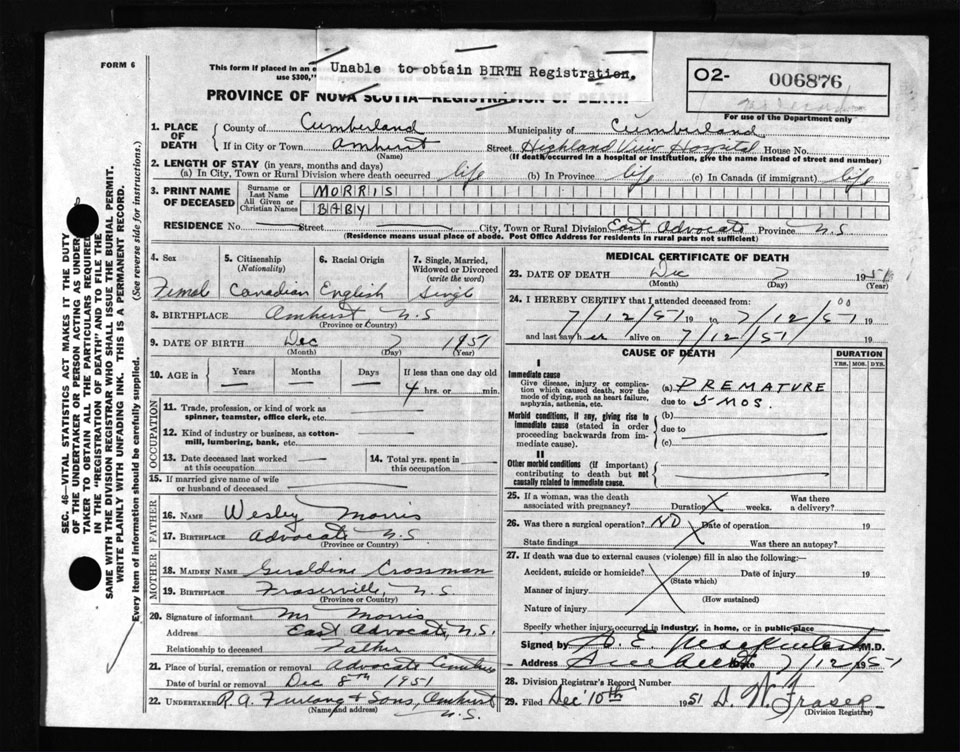 FORM 6
This form if placed in an e
use $300,"
Unable to obtain BIRTH Registration.
O2- 006876
PROVINCE OF NOVA SCOTIA—REGISTRATION OF DEATH
For use of the Department only
1. PLACE OF DEATH
County of Cumberland Municipality of Cumberland
If in City or Town Amherst Street Highland View Hospital House No.
(Name) (If death occurred in a hospital or institution, give the name instead of street and number)
2. LENGTH OF STAY (in years, months and days)
(a) In City, Town or Rural Division where death occurred life (b) In Province life (c) In Canada (if immigrant) life
3. PRINT NAME OF DECEASED
Surname or Last Name MORRIS
All Given or Christian Names BABY
RESIDENCE No. Street City, Town or Rural Division East Advocate Province N.S
(Residence means usual place of abode. Post Office Address for residents in rural parts not sufficient)
4. Sex 5. Citizenship (Nationality) 6. Racial Origin 7. Single, Married, Widowed or Divorced (write the word)
Femal Canadian English Singl
8. BIRTHPLACE Amherst N.S
(Province or Country)
9. DATE OF BIRTH Dec 7 1951
(Month) (Day) (Year)
10. AGE in Years Months Days If less than one day old
4 hrs. or min.
OCCUPATION
11. Trade, profession, or kind of work as spinner, teamster, office clerk, etc.
12. Kind of industry or business, as cotton-mill, lumbering, bank, etc.
13. Date deceased last worked at this occupation 14. Total yrs. spent in this occupation
15. If married give name of wife or husband of deceased
FATHER
16. NAME Wesley Morris
17. BIRTHPLACE Advocate N.S.
(Province or Country)
MOTHER
18. MAIDEN NAME Geraldine Crossman
19. BIRTHPLACE Fraserville, N.S
(Province or Country)
20. Signature of informant Mr Morris
Address East Advocate, N.S.
Relationship to deceased Father
21. Place of burial, cremation or removal Advocate
Date of burial or removal Dec 8th 1951
22. UNDERTAKER R.A. Furlong & Sons, Amherst
(Name and address) N.S.
MEDICAL CERTIFICATE OF DEATH
23. DATE OF DEATH Dec 7 1951
(Month) (Day) (Year)
24. I HEREBY CERTIFY that I attended deceased from:
7/12/51 19 to 7/12/51 19
and last saw her alive on 7/12/51 19
CAUSE OF DEATH DURATION
YRS. MOS. DYS.
I
Immediate cause
Give disease, injury or complication which caused death, NOT the mode of dying, such as heart failure, asphyxia, asthenia, etc.
(a) PREMATURE
due to 5-MOS.
Morbid conditions, if any, giving rise to immediate cause (stated in order proceeding backwards from immediate cause).
(b)
due to
(c)
II
Other morbid conditions (if important) contributing to death but not causally related to immediate cause.
25. If a woman, was the death associated with pregnancy? Duration weeks. Was there a delivery?
26. Was there a surgical operation? NO Date of operation 19
State findings Was there an autopsy?
27. If death was due to external causes (violence) fill in also the following:—
Accident, suicide or homicide? Date of injury 19
(State which)
Manner of injury
(How sustained)
Nature of injury
Specify whether injury occurred in industry, in home, or in public place
Signed by M.D.
Address Date 7/12 1951
28. Division Registrar's Record Number
29. Filed Dec 10th 1951 D. W. Fraser
(Division Registrar)
SEC. 46—VITAL STATISTICS ACT MAKES IT THE DUTY
OF THE UNDERTAKER OR PERSON ACTING AS UNDER
TAKER TO OBTAIN ALL THE PARTICULARS REQUIRED
IN THE "REGISTRATION OF DEATH" AND TO FILE THE
SAME WITH THE DIVISION REGISTRAR WHO SHALL ISSUE THE BURIAL PERMIT.
WRITE PLAINLY WITH UNFADING INK. THIS IS A PERMANENT RECORD.
Every item of information should be carefully supplied. (See reverse side for instructions.)